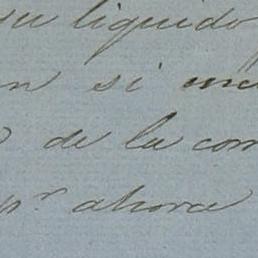 su liquido
n si
de la com
pr ahora